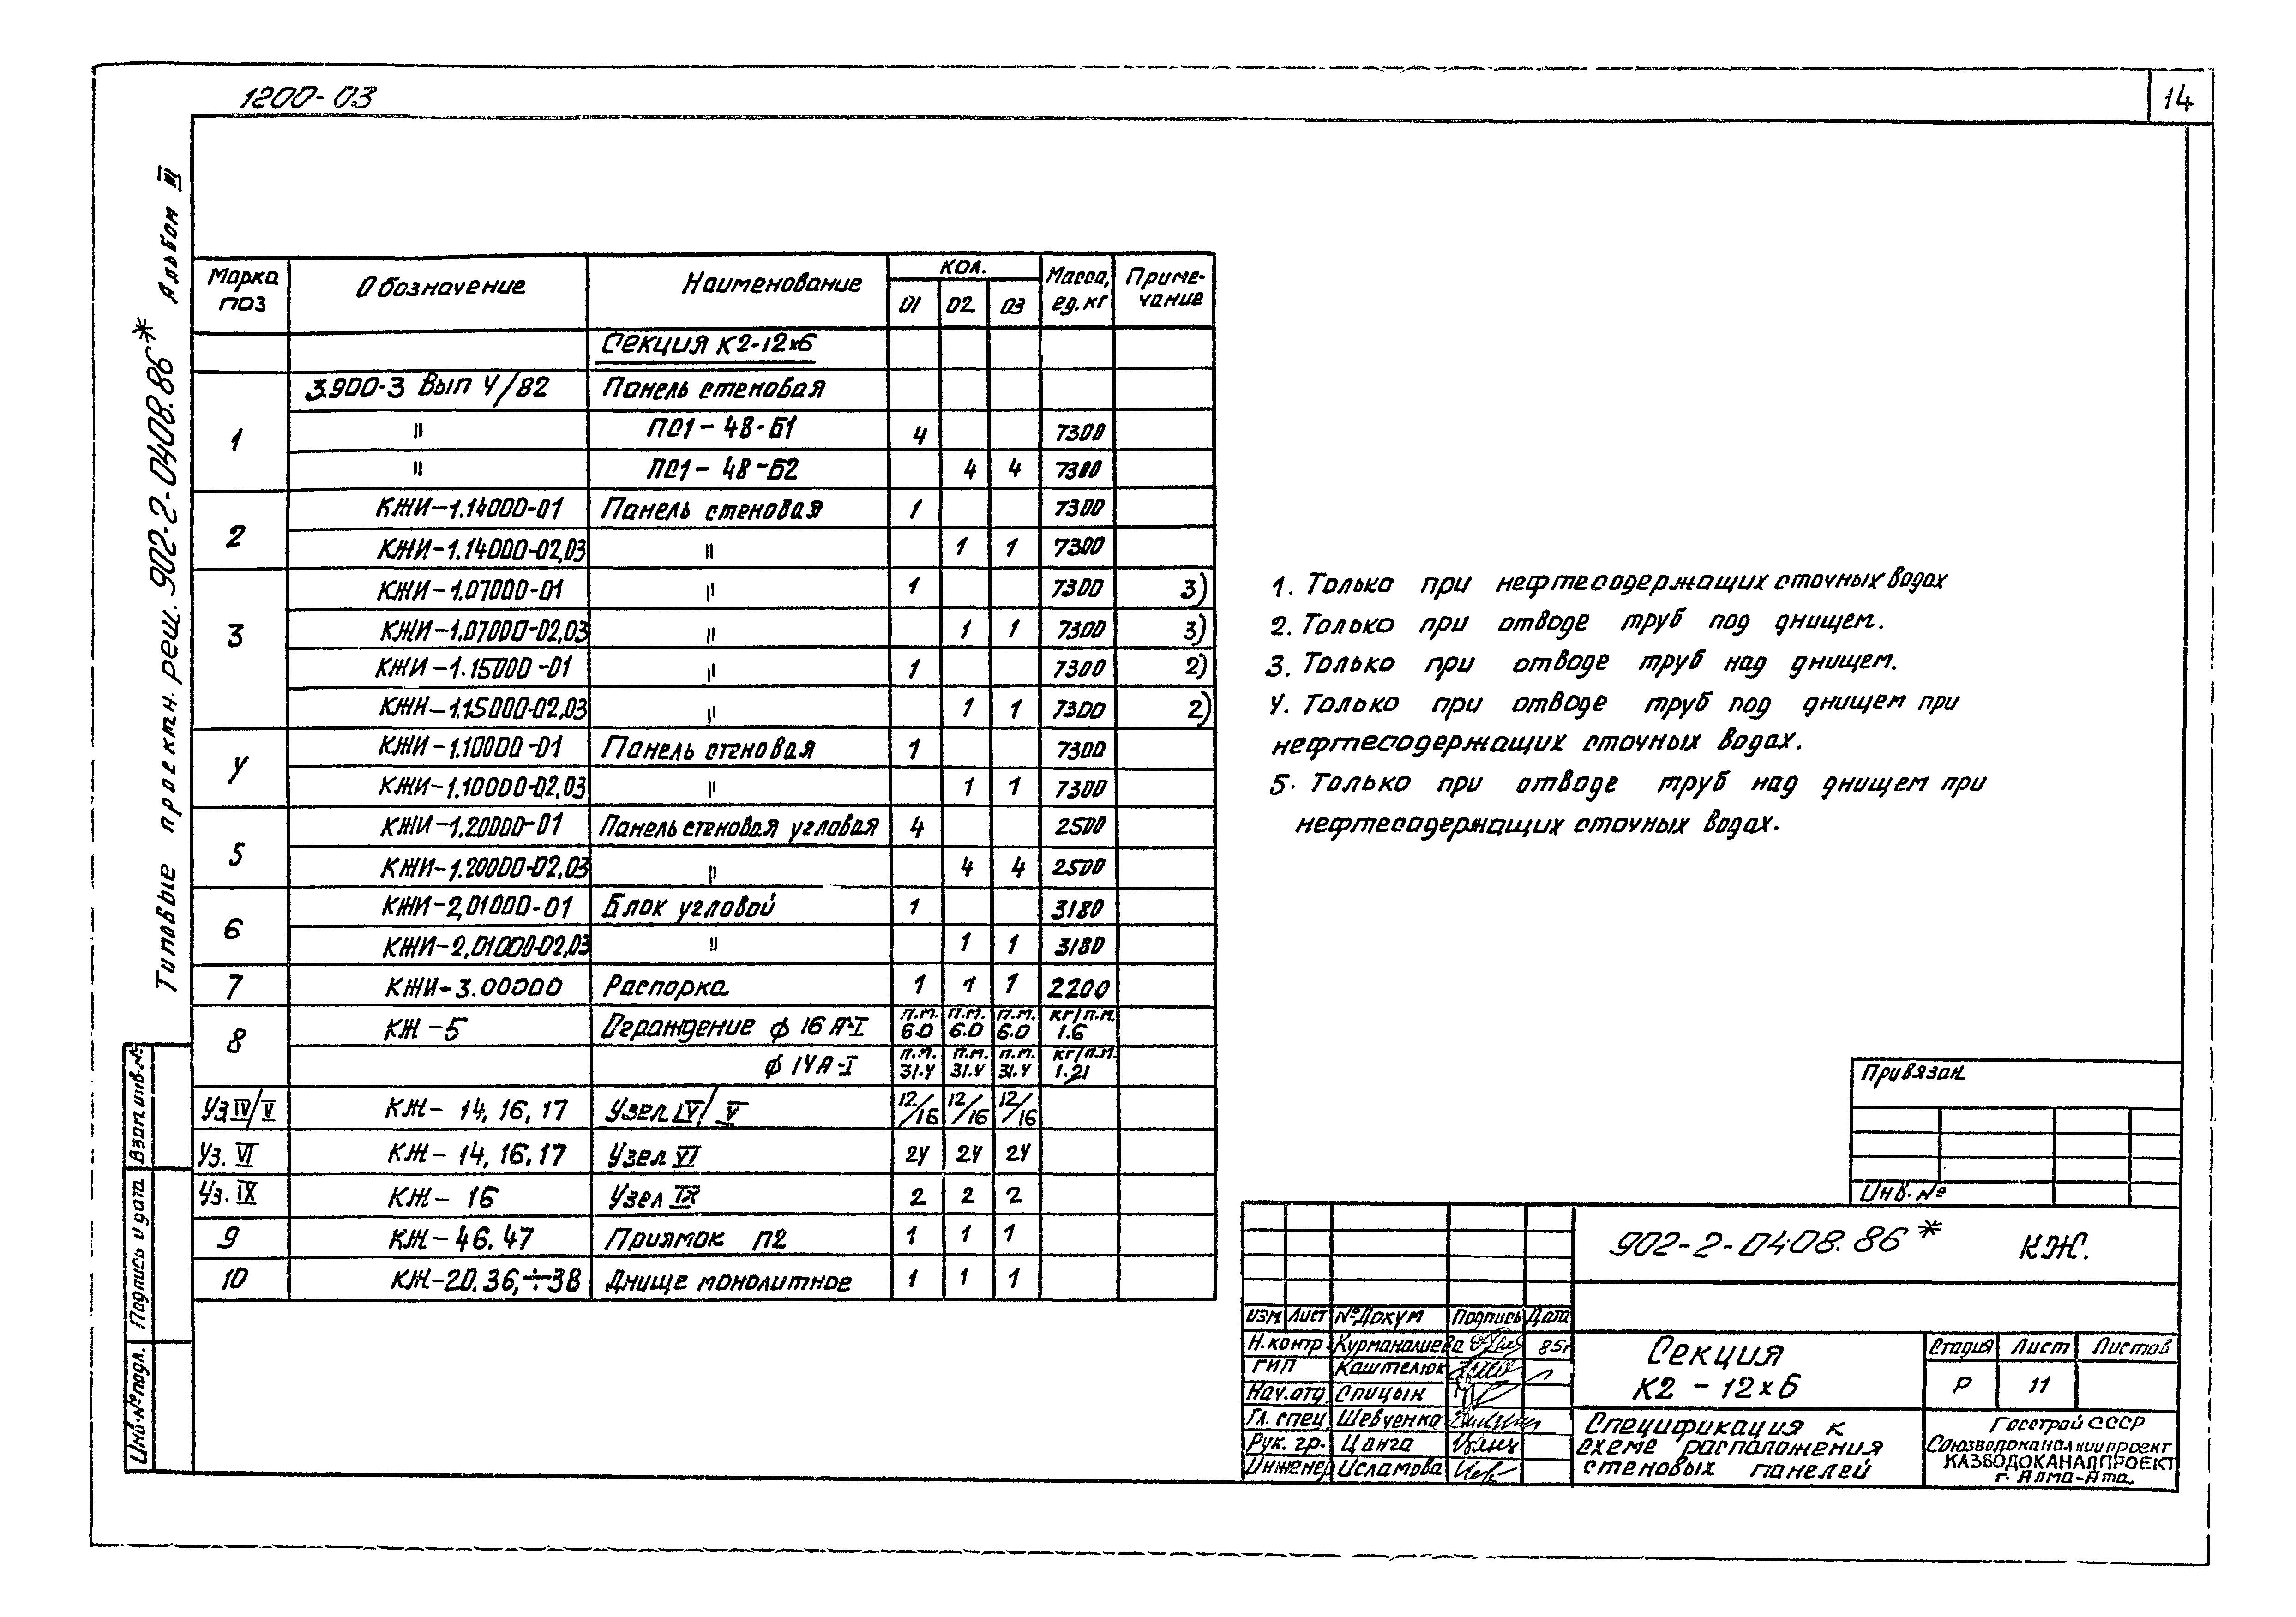 1200-03
14
Альбом III
Типовые проектн. реш. 902-2-0408.86*
Марка поз | Обозначение | Наименование | Кол. 01 | 02 | 03 | Масса, ед. кг | Приме-чание
Секция К2-12х6
1 | 3.900-3 Вып 4/82 | Панель стеновая
" | ПС1-48-Б1 | 4 | 7300
" | ПС1-48-Б2 | 4 | 4 | 7300
2 | КЖИ-1.14000-01 | Панель стеновая | 1 | 7300
КЖИ-1.14000-02,03 | " | 1 | 1 | 7300
3 | КЖИ-1.07000-01 | " | 1 | 7300 | 3)
КЖИ-1.07000-02,03 | " | 1 | 1 | 7300 | 3)
КЖИ-1.15000-01 | " | 1 | 7300 | 2)
КЖИ-1.15000-02,03 | " | 1 | 1 | 7300 | 2)
4 | КЖИ-1.10000-01 | Панель стеновая | 1 | 7300
КЖИ-1.10000-02,03 | " | 1 | 1 | 7300
5 | КЖИ-1.20000-01 | Панель стеновая угловая | 4 | 2500
КЖИ-1.20000-02,03 | " | 4 | 4 | 2500
6 | КЖИ-2,01000-01 | Блок угловой | 1 | 3180
КЖИ-2,01000-02,03 | " | 1 | 1 | 3180
7 | КЖИ-3.00000 | Распорка | 1 | 1 | 1 | 2200
8 | КЖ-5 | Ограждение ф 16 А-I | п.м. 6.0 | п.м. 6.0 | п.м. 6.0 | кг/п.м. 1.6
ф 14А-I | п.м. 31.4 | п.м. 31.4 | п.м. 31.4 | кг/п.м. 1.21
Уз IV/V | КЖ- 14, 16, 17 | Узел IV/V | 12/16 | 12/16 | 12/16
Уз. VI | КЖ- 14, 16, 17 | Узел VI | 24 | 24 | 24
Уз. IX | КЖ- 16 | Узел IX | 2 | 2 | 2
9 | КЖ-46.47 | Приямок п2 | 1 | 1 | 1
10 | КЖ-20.36,÷38 | Днище монолитное | 1 | 1 | 1
1. Только при нефтесодержащих сточных водах
2. Только при отводе труб под днищем.
3. Только при отводе труб над днищем.
4. Только при отводе труб под днищем при
нефтесодержащих сточных водах.
5. Только при отводе труб над днищем при
нефтесодержащих сточных водах.
Взам.инв.№
Подпись и дата
Инв.№ подл.
Привязан
Инв. №
902-2-0408.86* КЖ.
Изм Лист № Докум Подпись Дата
Н.контр. Курманалиева 85г
ГИП Каштелюк
Нач.отд. Спицын
Гл. спец. Шевченко
Рук. гр. Цанга
Инженер Исламова
Секция
К2 - 12х6
Стадия Лист Листов
Р 11
Спецификация к
схеме расположения
стеновых панелей
Госстрой СССР
Союзводоканалниипроект
КАЗВОДОКАНАЛПРОЕКТ
г. Алма-Ата